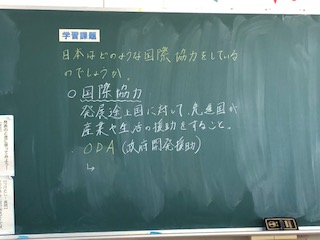 学習課題
日本はどのような国際協力をしている
のでしょうか。
○国際協力
発展途上国に対して、先進国が
産業や生活の援助をすること。
ODA(政府開発援助)
↳